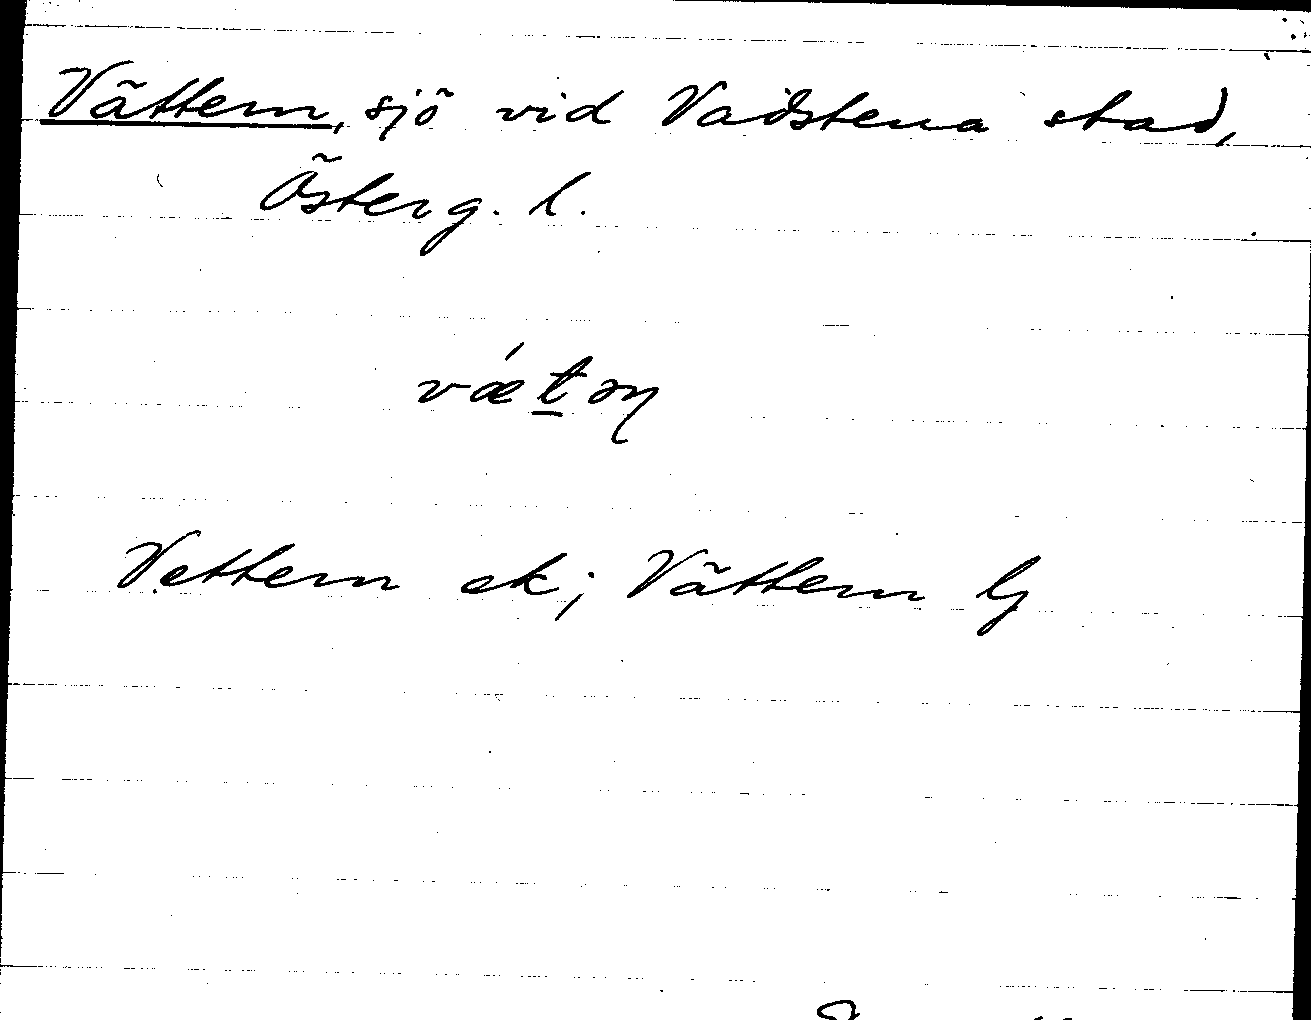 Vättern, sjö vid Vadstena stad,
Österg. l.
vǽt̲ən
Vettern ek; Vättern lj